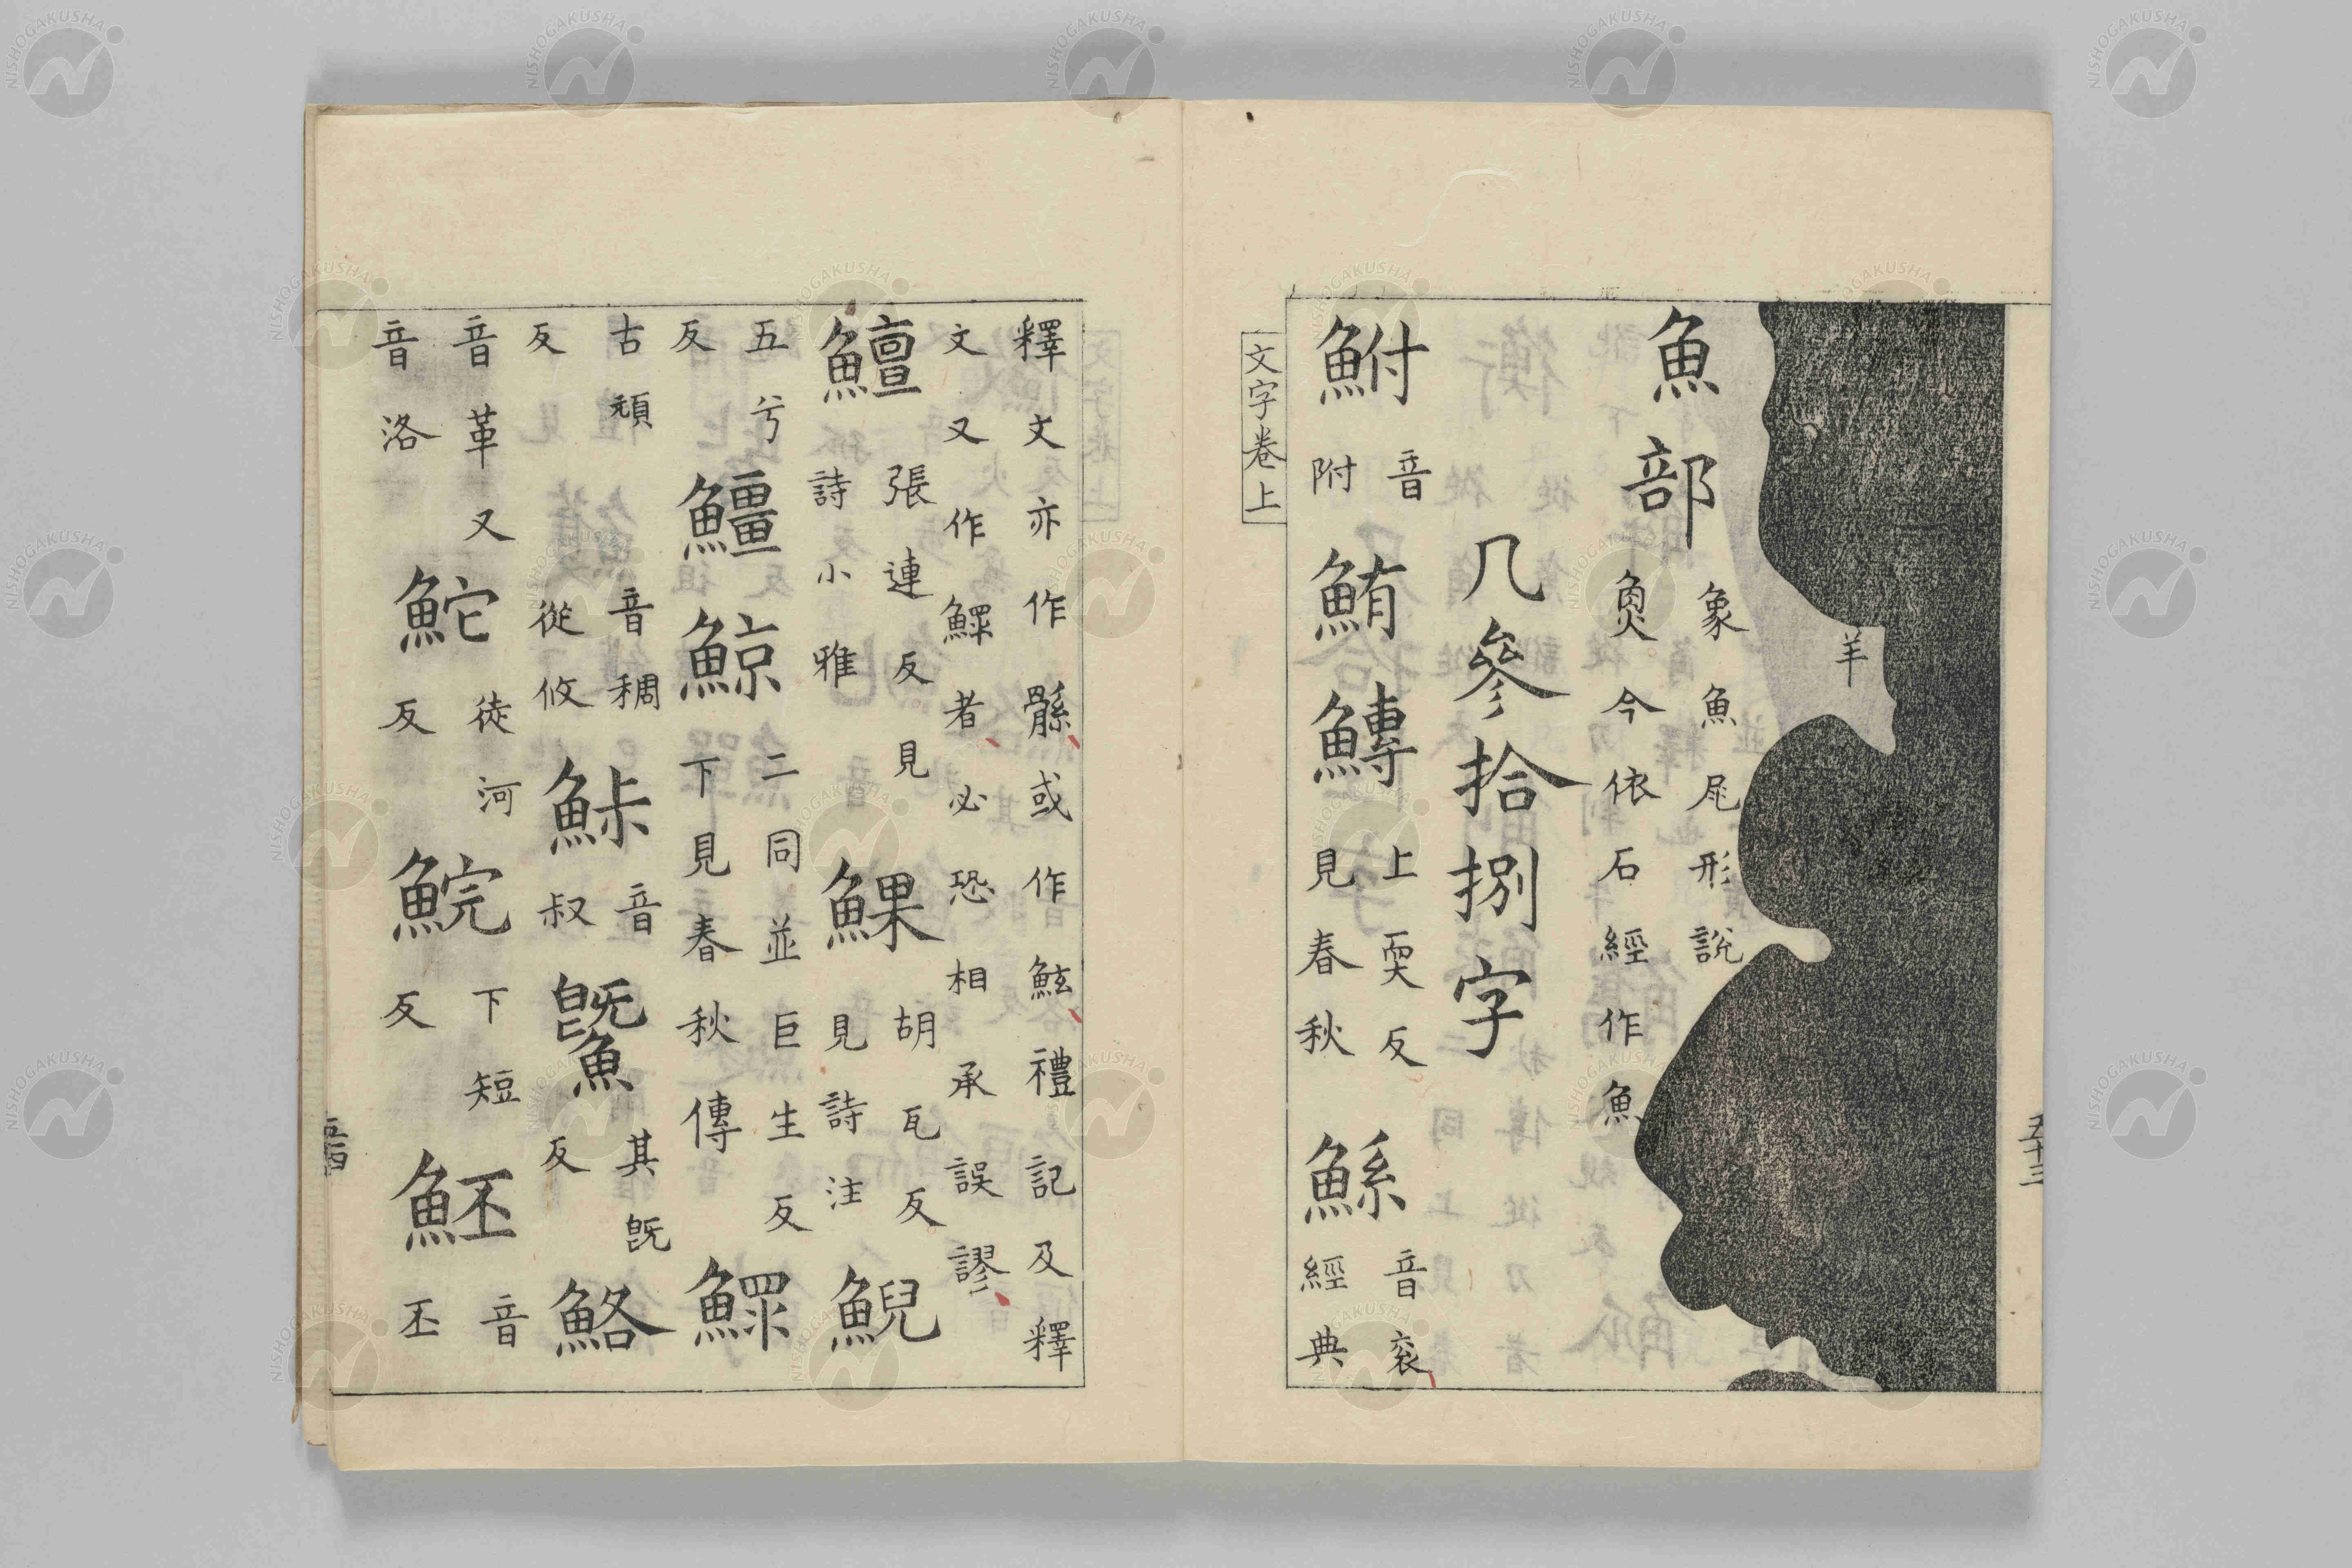 五十三
羊
魚部 象魚尾形說
𩵋今依石經作魚
凡參拾捌字
鮒 音附 鮪 鱄 上耎反見春秋 鯀 音衮經典
文字卷上
釋文亦作䯣或作鮌禮記及釋
文又作鰥者必恐相承誤謬
鱣 張連反見詩小雅 胡瓦反見詩注 鯢
五兮反 䲔 鯨 二同並巨生反下見春秋傳 鰥
古頑反 音稠從攸 鮛 音叔 鱀 其旣反 鮥
音革又音洛 鮀 徒河反 鯇 下短反 魾 音丕
五十四